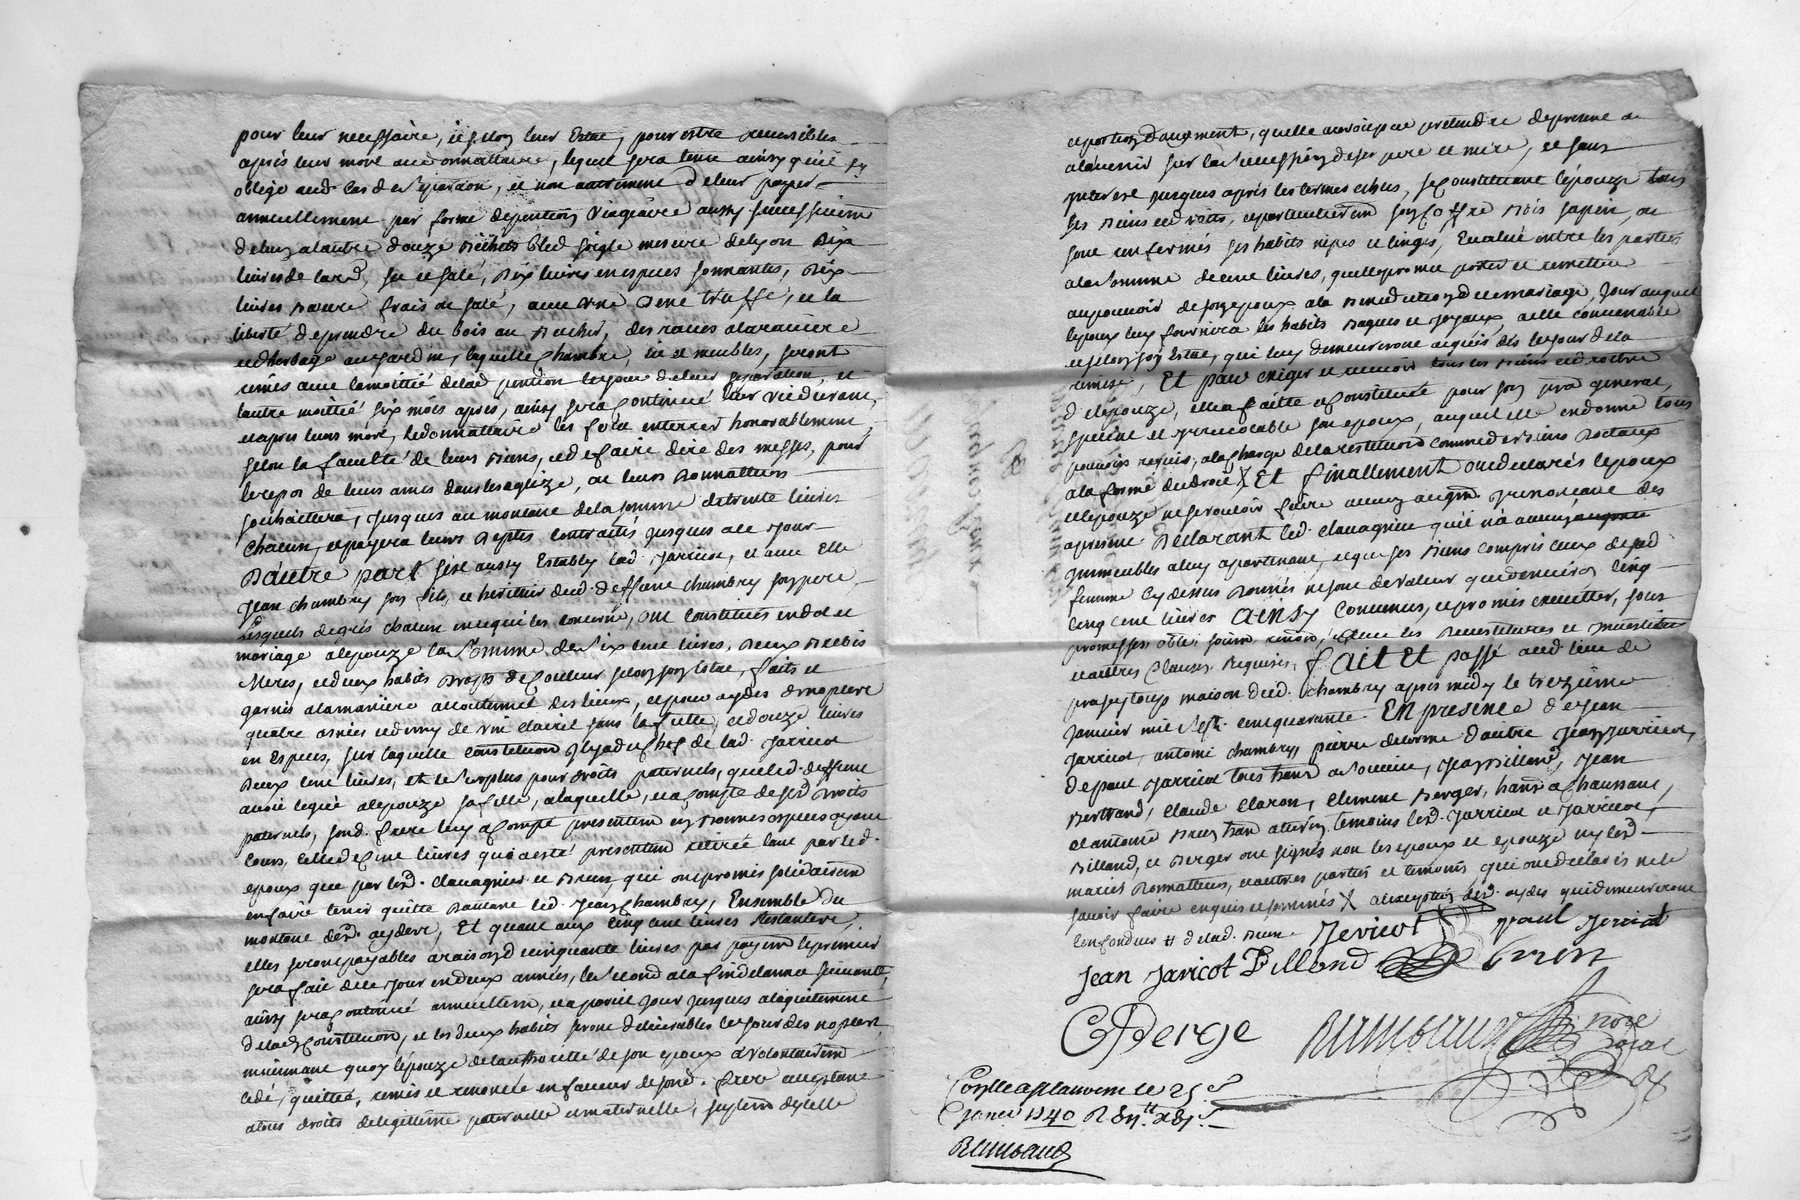 pour leur necessaire, et selon leur Estat, pour estre reversibles
apres leur mort aud. donnattaire, lequel sera tenu ainsy qu'il sy
oblige aud. cas de separaon, et non autrement de leur payer
annuellement par forme de pention viagere aussy
de l'un a lautre douze Bichets bled seigle mesure de lyon Dix
livres de lard, sec et salé, Dix livres en especes sonnantes, Dix
livres Beurre frais ou salé, truffe, et la
liberté de prendre du bois au Bucher, des raves a la raviere
et dherbage au jardin, laquelle chambre, lit et meubles, seront
remis avec la moittié de lad. pention le jour de leur separation, et
lautre moittié six mois apres, ainsy sera continué leur vie durant,
et apres leurs mort, led. donnattaire les fera enterrer honorablement,
selon la faculté de leurs Biens, et de faire dire des messes, pour
le repos de leurs ames dans les eglize, ou leurs Donnatteurs
souhaittera, jusques au montant de la somme de trente livres
chacun, et payera leurs deptes contractés jusques a ce jour
D'autre part s'est aussy Establly lad. Jarricot, et avec Elle
Jean Chambry son fils, et heritier dud. deffunt chambry son pere,
Lesquels de grés chacun en ce qui les concerne, ont constitués en dot et
mariage a l'epouze la Somme de Six cent livres, Deux Brebis
Meres, et deux habits de couleur selon son Estat, faits et
garnis a la maniere accoutumé des lieux, et pour aydes de nopces
quatre asnées et demy de vin clairet sans la futte, et douze livres
en Especes, sur laquelle constitution Il y a du chef de lad. Jarricot
Deux cent livres, et le surplus pour droits paternels, que led. deffunt
avoit legué a lepouze sa fille, a laquelle, et a compte de sesd. Droits
paternels, sond. frere luy a compté presentem en Bonnes especes ayant
Cours, celle de cent livres qui a esté presentem retirée tant par led.
epoux que par lesd. clavagnier et Brun, qui ont promis solidairem
en faire tenir quitte Davant led. Jean Chambry, Ensemble du
montant desd. aydes, Et quant aux Cinq cent livres Restantes,
elles seront payables a raison de cinquante livres par payem le premier
sera fait de ce jour en deux années, le second a la fin de lannée suivante,
ainsy sera continué annuellem, et a pareil jour jusques a laquittement
de lad. Constitution, et les deux habits seront delivrables le jour des nopces,
moiennant quoy l'epouze de lauthorité de son epoux a volontairem
cedé, quitté, remis et renoncé en faveur de sond. frere acceptant
a tous droits de legittime paternelle et maternelle, suplem dicelle
et portion d'augment, quelle auroit pu pretendre de presant ou
a l'avenir sur la Succession de ses pere et mere, et sans
interest jusques apres les termes echus, se constituant l'epouze tous
ses Biens et droits, et particulierem son coffre Bois sapin, ou
sont enfermés ses habits nipes et linges, Evalué entre les parties
a la Somme de cent livres, quelle promet porter et remettre
au pouvoir de son epoux a la Benediction de ce mariage, jour auquel
lepoux luy fournira les habits Bagues et Joyaux, a elle convenable
et selon son Estat, qui luy demeureront acquis dés le jour de la
remise, Et pour exiger et recevoir tous les Biens et droits
d'lépouze, elle a faitte et constitué pour son pror general,
special et irrevocable son epoux, auquel elle en donne tous
pouvoirs requis, a la charge de la restitution comme de Biens Dotaux
a la forme du droit X Et finallement ont declarés lepoux
et lepouze ne se vouloir faire aucun augm. Renoncant des
a present Declarant led. clavagnier qu'il n'a aucuns
Immeubles a luy apartenant, et que ses Biens compris ceux de sad.
femme cy dessus Donnés ne sont de valeur que denviron Cinq
cinq cent livres Ainsy Convenus, et promis executter, sous
promesses, oblig. soum. renon. et
et autres Clauses Requises, fait et passé aud. lieu de
maison dud. Chambry apres midy le trezieme
Janvier mil Sept cent quarante. En presence de Jean
Jarricot, antoine chambry, pierre delorme d'autre Jean Jarricot,
de paul Jarricot tous hants a Soucieu, Jean Billand, Jean
Bertrand, Claude Claron, Clement Berger, hants a Chaussant,
et antoine Brun hant a temoins lesd. Jarricot et Jarricot,
Billand, et Berger ont signés non les epoux et epouze ny lesd.
mariés Donnatteurs, et autres parties et temoins, qui ont declarés ne le
savoir faire enquis et sommés X a lexeption desd. aydes qui demeureront
confondues # de lad. Brun. Jericot paul Jericot
Jean Jaricot Billand Brun
C Berge Rimbaud nore
royal
Conlle a St laurent le 25e
Janvr 1740 R
Rimbaud